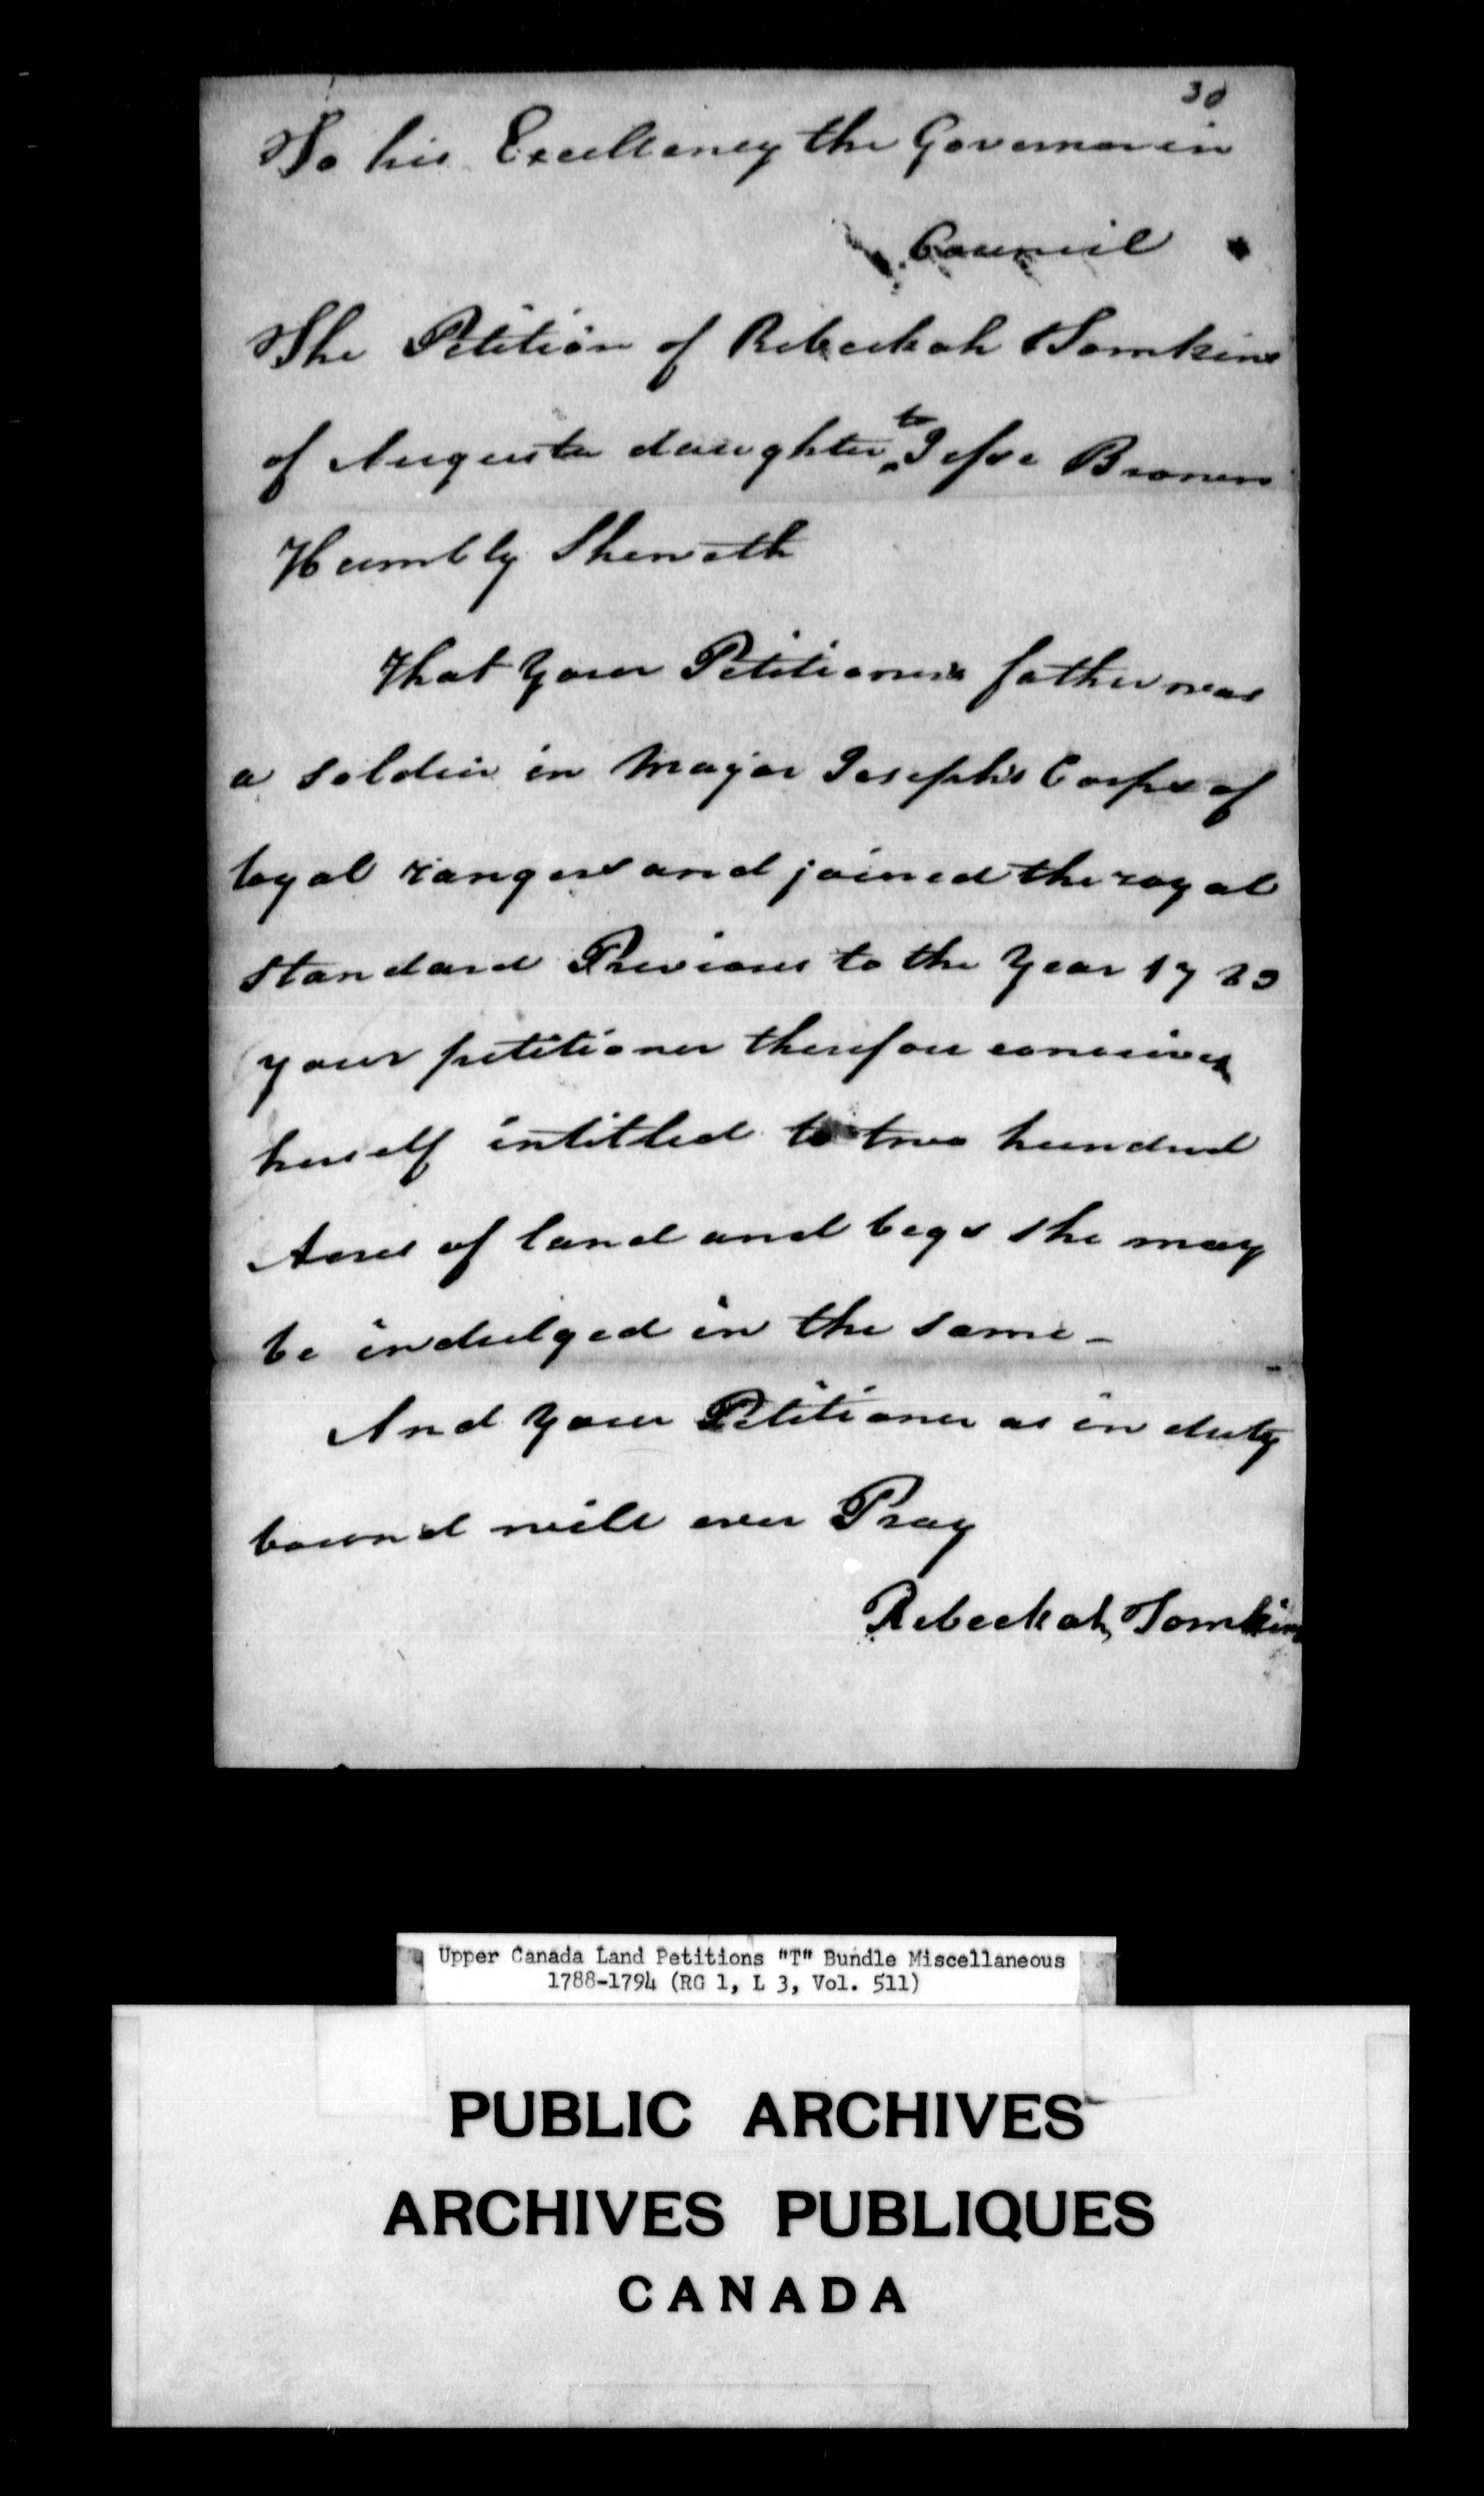 30
To his Excellency the Governor in
Council
The Petition of Rebeckah Tomkins
of Augusta daughter to Jesse Brown
Humbly Sheweth
That Your Petitioners father was
a soldier in Major Joseph's Corps of
loyal rangers and joined the royal
standard Previous to the Year 1783
your petitioner therefore conceives
herself intitled to two hundred
Acres of land and begs she may
be indulged in the same -
And Your Petitioner as in duty
bound will ever Pray
Rebeckah Tomkins
Upper Canada Land Petitions "T" Bundle Miscellaneous
1788-1794 (RG 1, L 3, Vol. 511)
PUBLIC ARCHIVES
ARCHIVES PUBLIQUES
CANADA